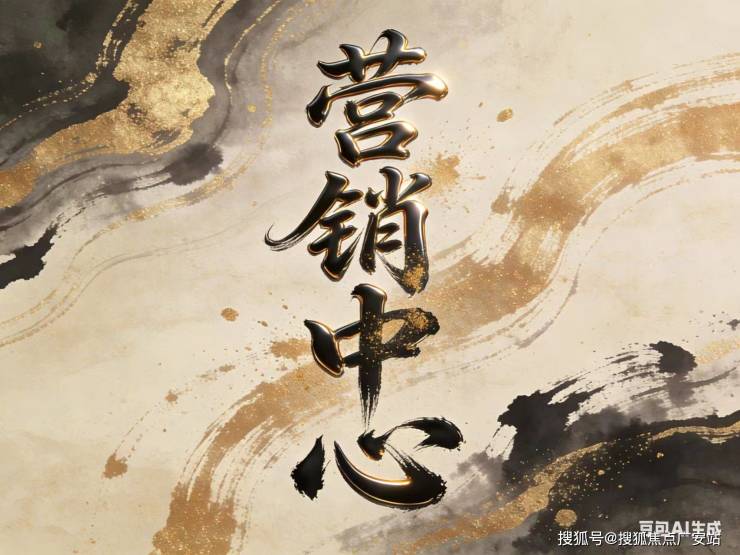 营销中心
豆包AI生成
搜狐号@搜狐焦点广安站